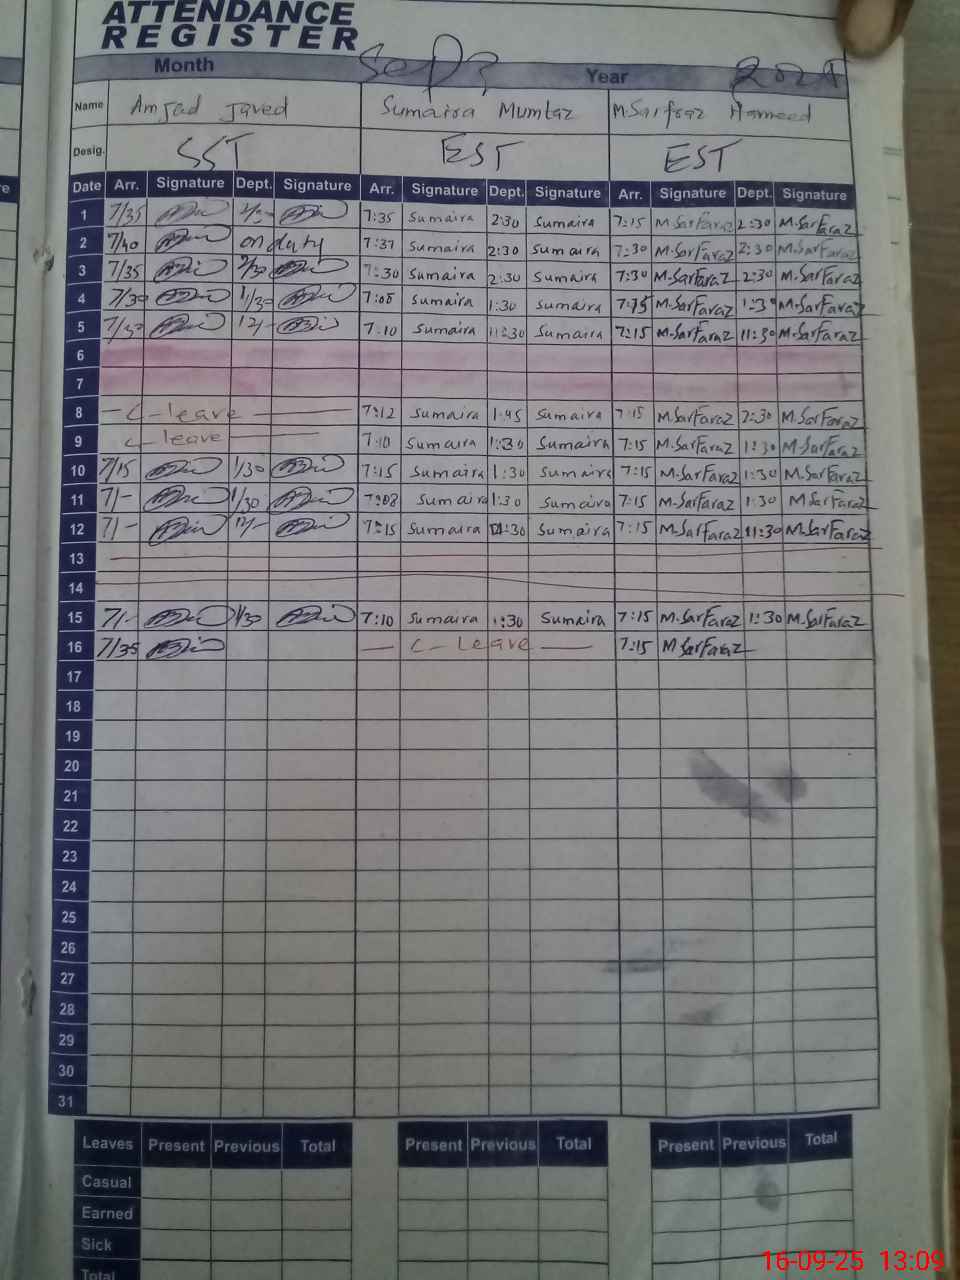 ATTENDANCE
REGISTER
Month Sep Year
Name Amjad Javed Sumaira Mumtaz M.Sarfraz Hameed
Desig. SST EST EST
Date Arr. Signature Dept. Signature Arr. Signature Dept. Signature Arr. Signature Dept. Signature
1 7/35 7:35 Sumaira 2:30 Sumaira 7:15 M.SarFaraz 2:30 M.SarFaraz
2 7/40 on duty 7:37 Sumaira 2:30 Sumaira 7:30 M.SarFaraz 2:30 M.SarFaraz
3 7/35 7:30 Sumaira 2:30 Sumaira 7:30 M.SarFaraz 2:30 M.SarFaraz
4 7/30 1/30 7:08 Sumaira 1:30 Sumaira 7:15 M.SarFaraz 1:30 M.SarFaraz
5 7/30 12/- 7:10 Sumaira 11:30 Sumaira 7:15 M.SarFaraz 11:30 M.SarFaraz
6
7
8 C-leave 7:12 Sumaira 1:45 Sumaira 7:15 M.SarFaraz M.SarFaraz
9 C-leave 7:10 Sumaira 1:30 Sumaira 7:15 M.SarFaraz 1:30 M.SarFaraz
10 7/15 1/30 7:15 Sumaira 1:30 Sumaira 7:15 M.SarFaraz 1:30 M.SarFaraz
11 7/- 1/30 7:08 Sumaira 1:30 Sumaira 7:15 M.SarFaraz 1:30 M.SarFaraz
12 7/- 7:15 Sumaira 11:30 Sumaira 7:15 M.SarFaraz 11:30 M.SarFaraz
13
14
15 7/- 1/30 7:10 Sumaira 1:30 Sumaira 7:15 M.SarFaraz 1:30 M.SarFaraz
16 7/35 C-Leave 7:15 M.SarFaraz
17
18
19
20
21
22
23
24
25
26
27
28
29
30
31
Leaves Present Previous Total Present Previous Total Present Previous Total
Casual
Earned
Sick
Total
16-09-25 13:09